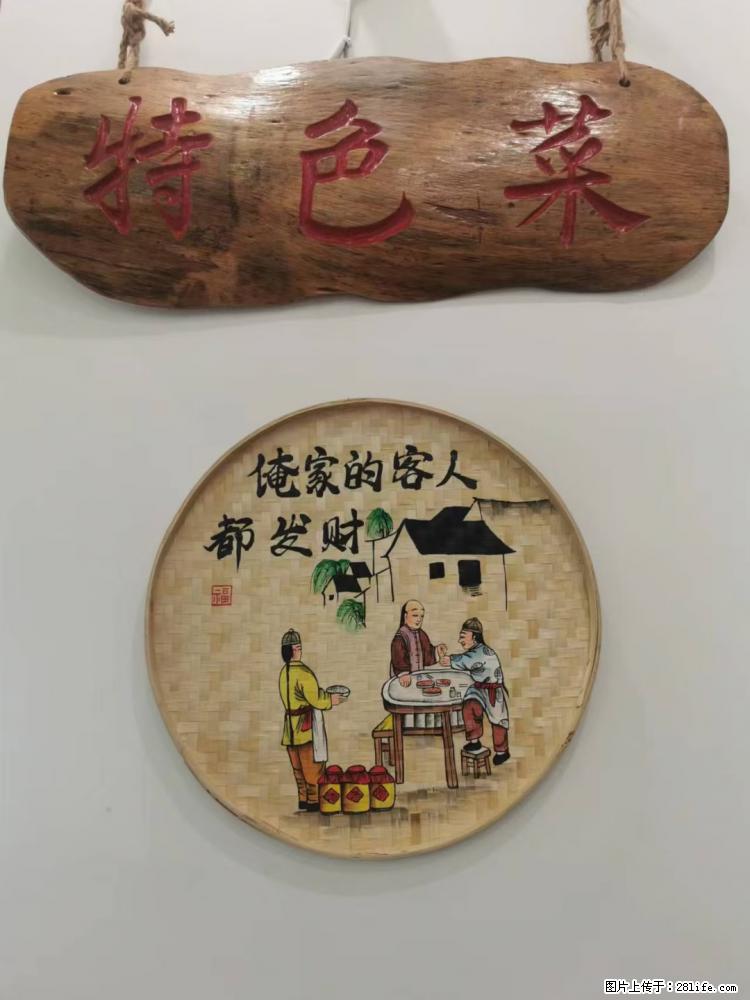 特色菜
俺家的客人
都发财
福
图片上传于：28life.com